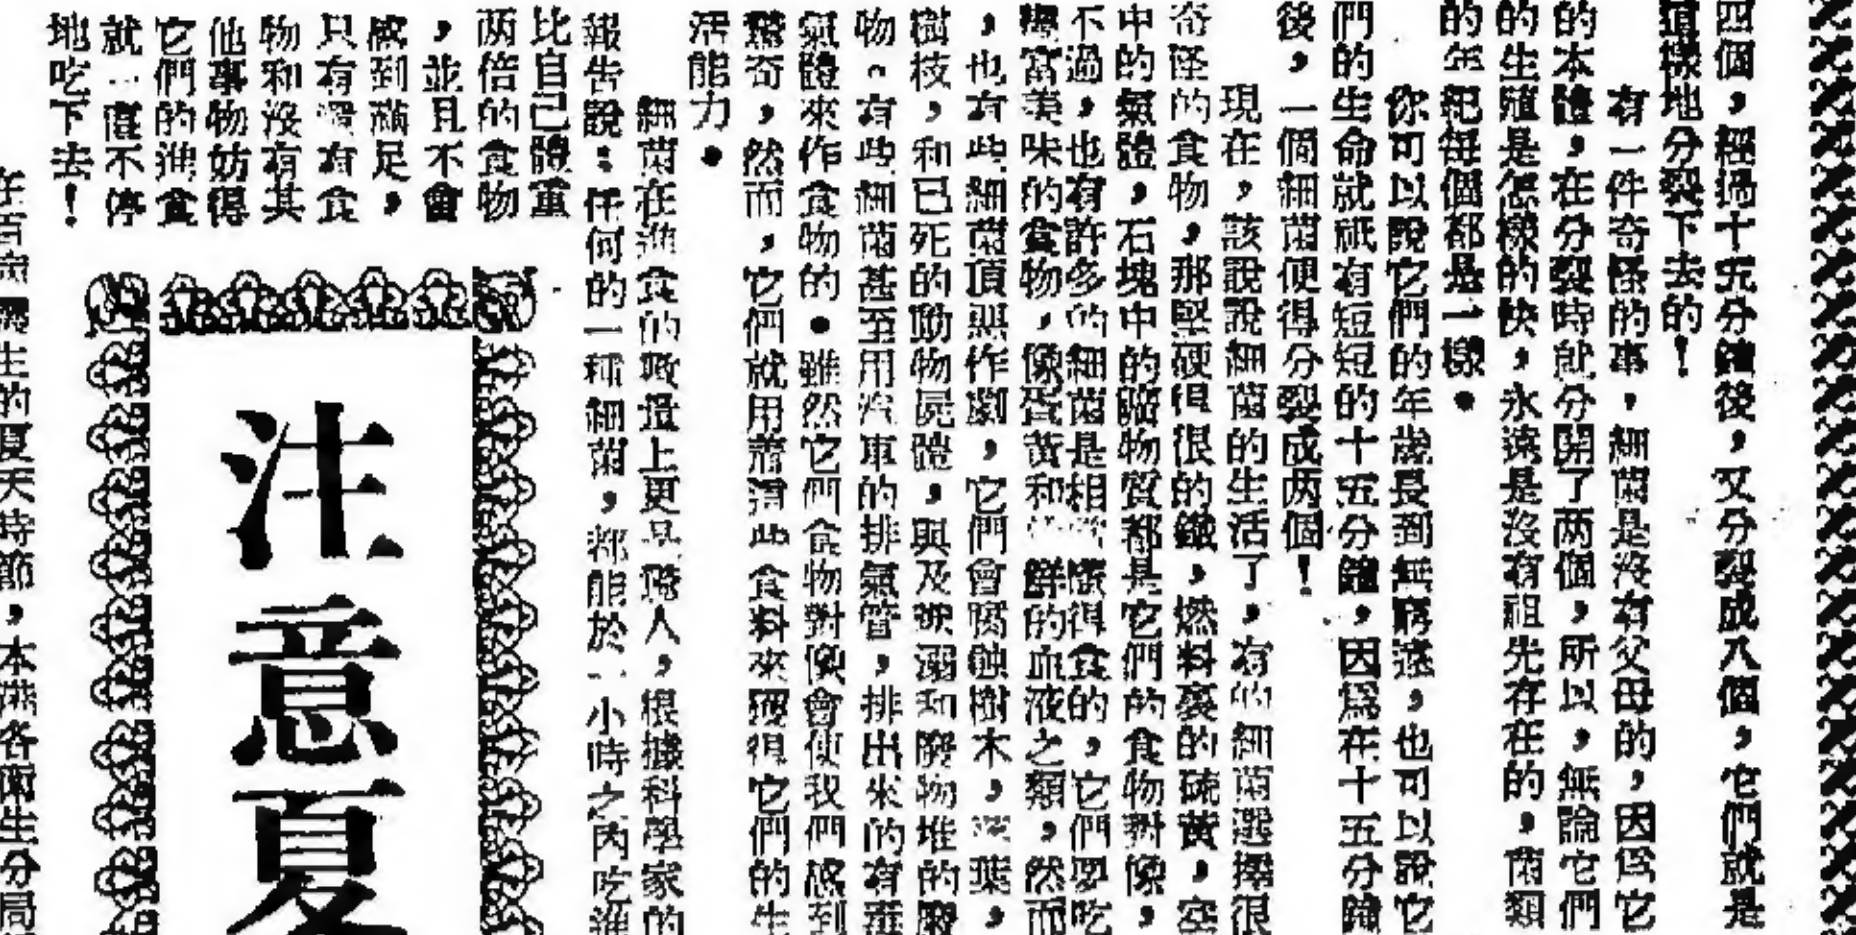 四個，經過十五分鐘後，又分裂成八個，它們就是
這樣地分裂下去的！
有一件奇怪的事，細菌是沒有父母的，因爲它
的本體，在分裂時就分開了两個，所以，無論它們
的生殖是怎樣的快，永遠是沒有祖先存在的，菌類
的年紀每個都是一樣。
你可以說它們的年歲長到無窮遠，也可以說它
們的生命就祇有短短的十五分鐘，因爲在十五分鐘
後，一個細菌便得分裂成两個！
現在，該說說細菌的生活了，有的細菌選擇很
奇怪的食物，那堅硬得很的鐵，燃料裏的硫黃，空
中的氣體，石塊中的礦物質都是它們的食物對像，
不過，也有許多的細菌是相當懂得食的，它們要吃
豐富美味的食物，像蛋黃和 鮮的血液之類，然而
，也有些細菌頂惡作劇，它們會腐蝕樹木，葉，
樹枝，和已死的動物屍體，與及 溺和廢物堆的廢
物。有些細菌甚至用汽車的排氣管，排出來的有毒
氣體來作食物的。雖然它們食物對像會使我們感到
驚奇，然而，它們就用着這些食料來獲得它們的生
活能力。
細菌在進食的 量上更是驚人，根據科學家的
報告說：任何的一種細菌，都能於一小時之內吃進
比自己體重
两倍的食物
，並且不會
感到滿足，
只有還有食
物和沒有其
他事物妨得
它們的進食
就一直不停
地吃下去！
注意夏
生的夏天時節，本港各衛生分局